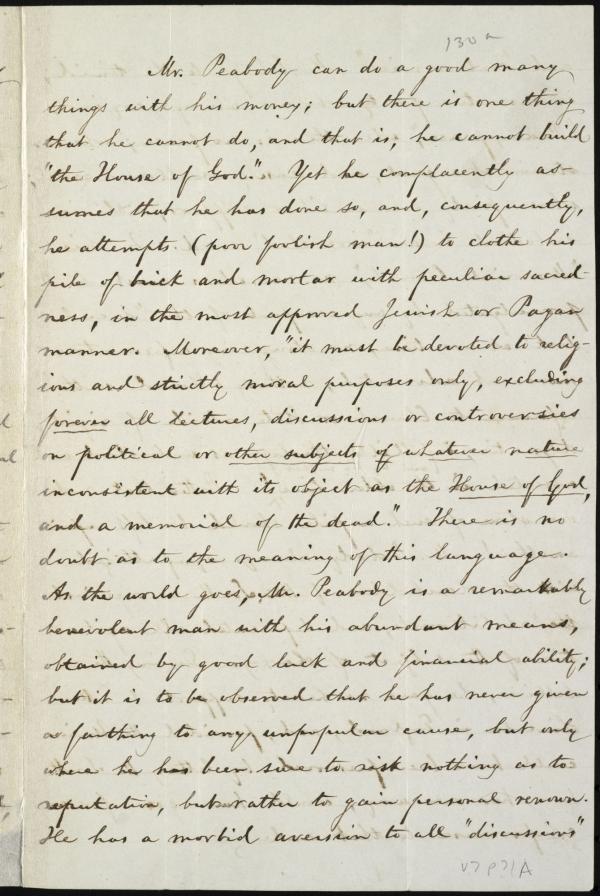 130a
Mr. Peabody can do a good many
things with his money; but there is one thing
that he cannot do, and that is, he cannot build
"the House of God." Yet he complacently as-
sumes that he has done so, and, consequently,
he attempts (poor foolish man!) to clothe his
pile of brick and mortar with peculiar sacred-
ness, in the most approved Jewish or Pagan
manner. Moreover, "it must be devoted to relig-
ious and strictly moral purposes only, excluding
forever all lectures, discussions or controversies
on political or other subjects of whatever nature
inconsistent with its object as the House of God,
and a memorial of the dead." There is no
doubt as to the meaning of this language.
As the world goes, Mr. Peabody is a remarkably
benevolent man with his abundant means,
obtained by good luck and financial ability;
but it is to be observed that he has never given
a farthing to any unpopular cause, but only
where he has been sure to risk nothing as to
reputation, but rather to gain personal renown.
He has a morbid aversion to all "discussions"